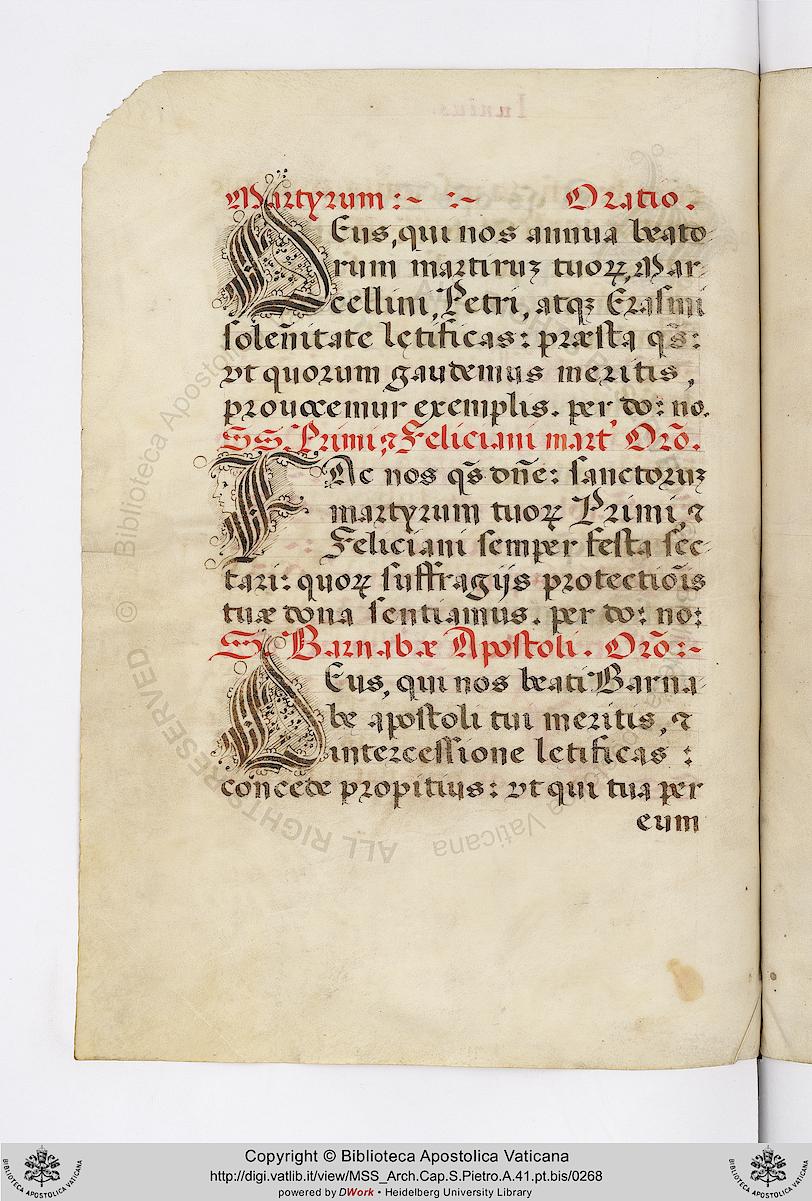 Martyrum :~ :~ Oratio.
DEus, qui nos annua beato-
rum martiruʒ tuoꝝ, Mar-
cellini, Petri, atqʒ Erasmi
solen̄itate lętificas: præsta qs̄:
vt quorum gaudemus meritis,
prouocemur exemplis. per do: no.
SS. Primi ⁊ Feliciani mart' Orō.
FAc nos qs̄ dn̄e: sanctoruʒ
martyrum tuoꝝ Primi, ⁊
Feliciani semper festa sec-
tari: quoꝝ suffragijs protectiōis
tuæ dona sentiamus. per do: no:
S. Barnabæ Apostoli. Orō:~
DEus, qui nos beati Barna-
be apostoli tui meritis, ⁊
intercessione letificas :
concede propitius: vt qui tua per
eum
Copyright © Biblioteca Apostolica Vaticana
http://digi.vatlib.it/view/MSS_Arch.Cap.S.Pietro.A.41.pt.bis/0268
powered by DWork • Heidelberg University Library
© Biblioteca Apostolica Vaticana
ALL RIGHTS RESERVED